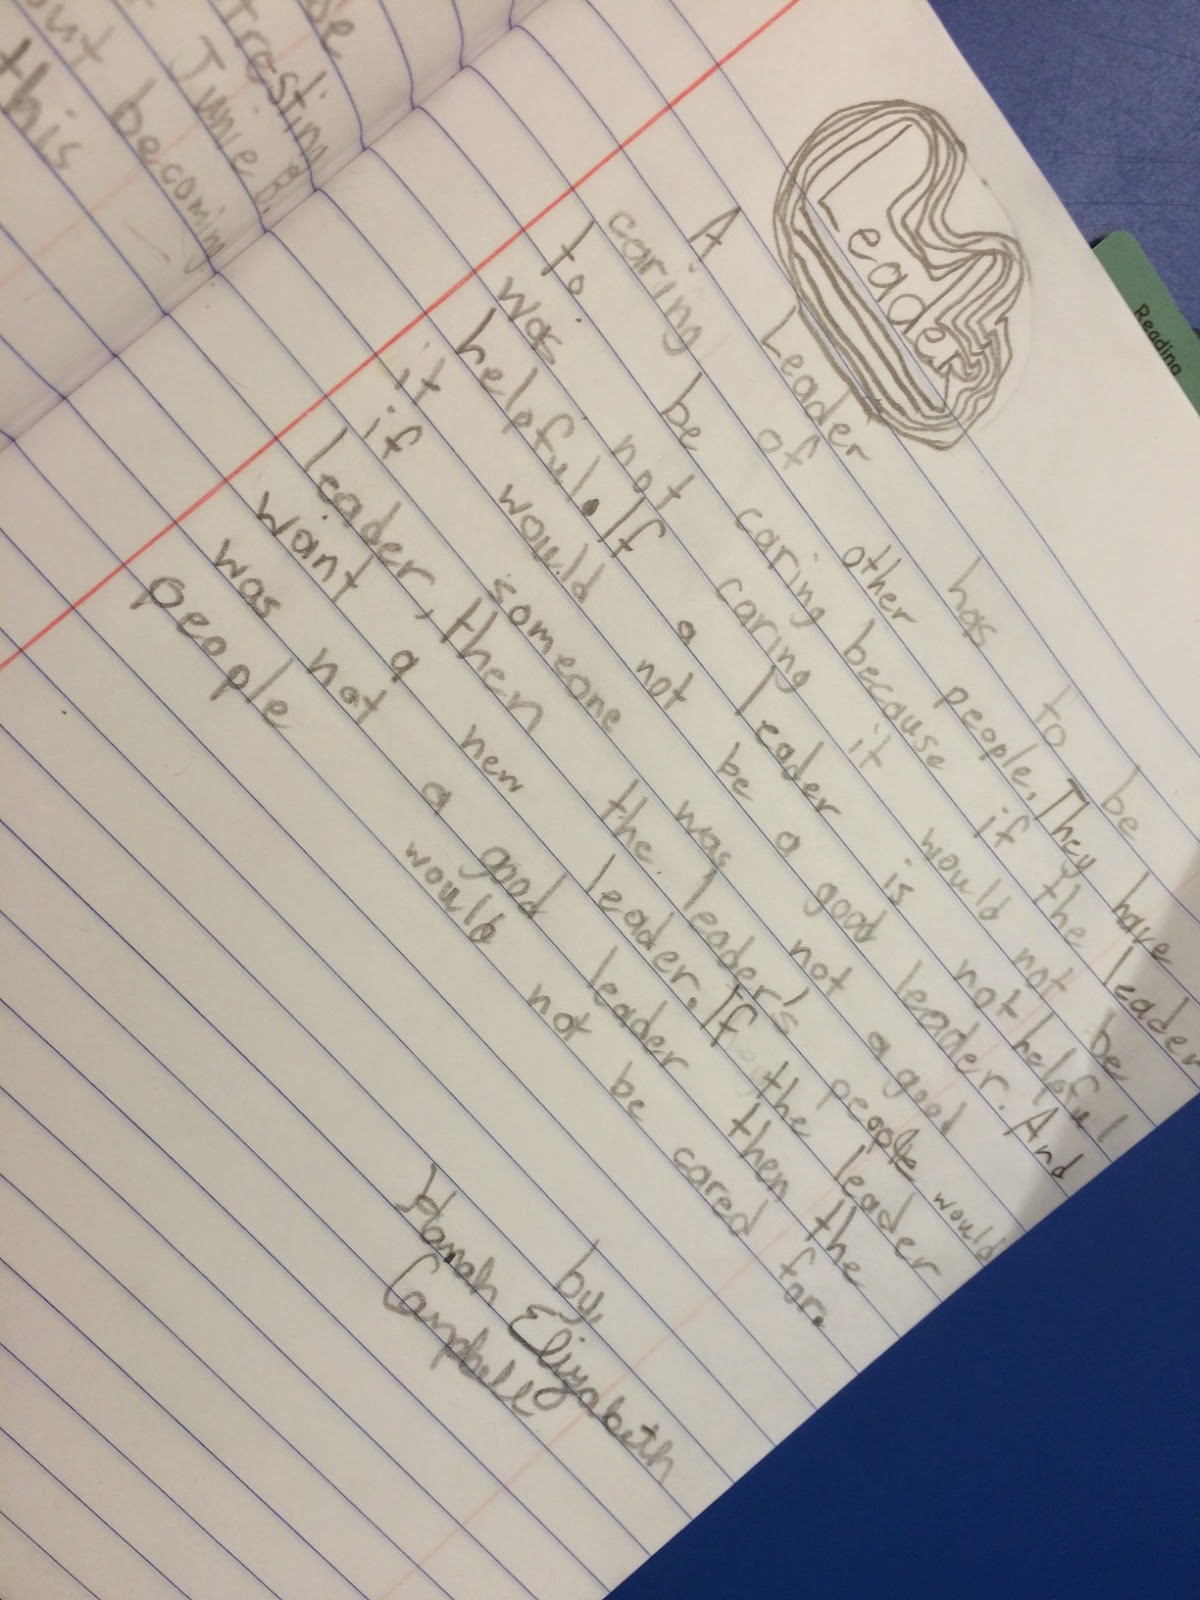 tresting
Junie B.
out becoming
this
Reading
Leader
A Leader has to be
caring of other people. They have
to be caring because if the leader
was not caring it would not be
helpful. If a leader is not helpful
it would not be a good leader. And
if someone was not a good
leader, then the leader's people would
want a new leader. If the leader
was not a good leader then the
people would not be cared for.
by,
Hanah Elizabeth
Campbell